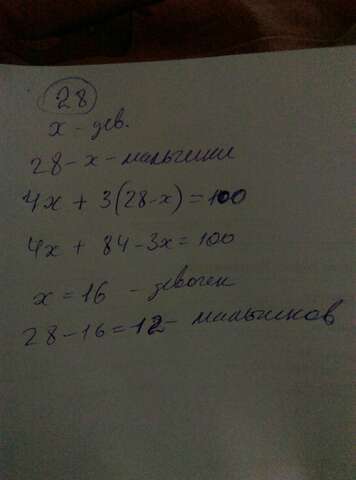 28
x - дев.
28 - x - мальчики
4x + 3(28-x) = 100
4x + 84 - 3x = 100
x = 16 - девочек
28 - 16 = 12 - мальчиков